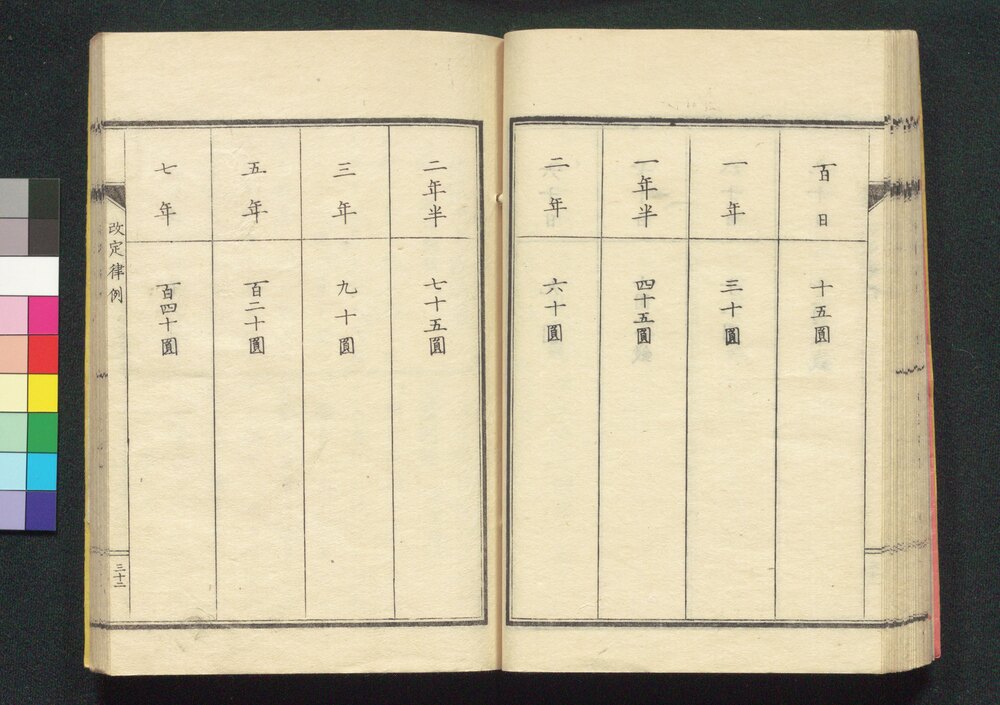 百日
十五圓
一年
三十圓
一年半
四十五圓
二年
六十圓
二年半
七十五圓
三年
九十圓
五年
百二十圓
七年
百四十圓
改定律例
三十二